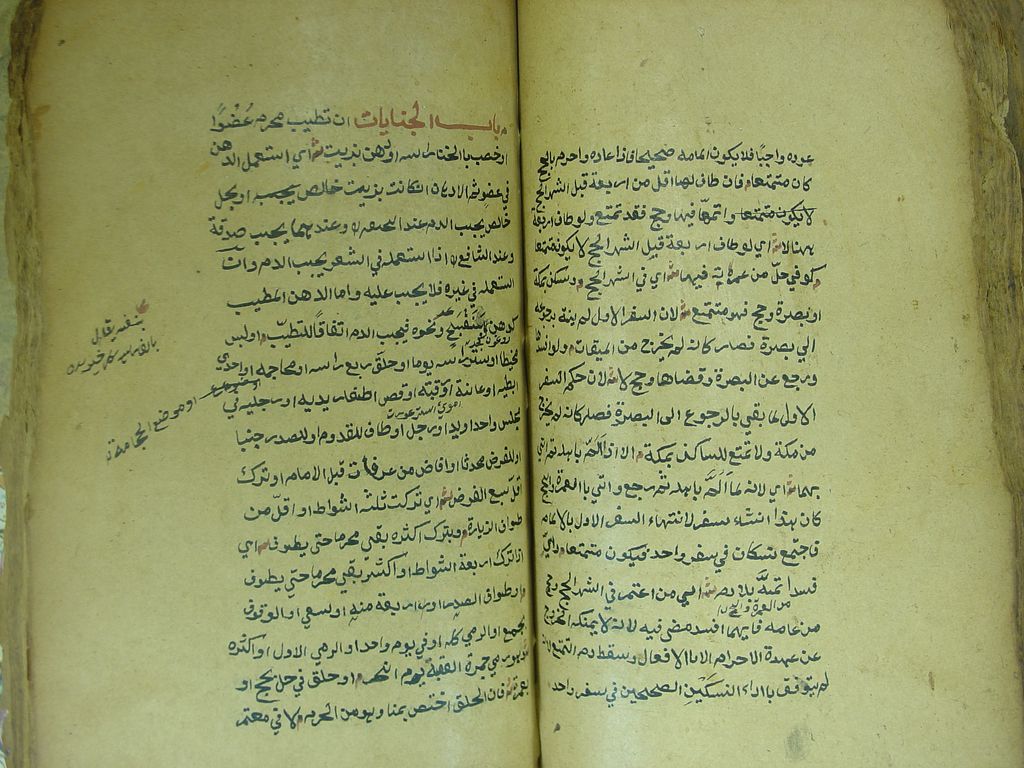 عوده واجبًا فلا يكون المامه صحيحا فاذا عاده واحرم بالحج
كان متمتعا م فان طاف لها اقل من اربعة قبل اشهر الحج
لا يكون متمتعا واتمها فيها وحج فقد تمتع ولو طاف اربعة
هنا لا ش اي لو طاف اربعة قبيل اشهر الحج لا يكون متمتعا
م كوفي حل من عمرته فيها ش اي في اشهر الحج م وسكن بمكة
او بصرة وحج فهو متمتع ش لان السفر الاول لم ينته برجوعه
الي بصرة فصار كانه لم يخرج من الميقات م ولو افسدها
ورجع عن البصرة وقضاها وحج لا ش لان حكم السفر
الاول لما بقي بالرجوع الى البصرة فصار كانه لم يخرج
من مكة ولا تمتع للساكن بمكة م الا اذا الم باهله ثم اتي
بهما ش اي لانه لما الم باهله ثم رجع واتي بالعمرة والحج
كان هذا انشاء سفر لانتهاء السفر الاول بالالمام
فاجتمع نسكان في سفر واحد فيكون متمتعا م واي
فسد اتمه بلا دم ش اي من اعتمر في اشهر الحج وحج
من العمرة والحج
من عامه فايهما افسد مضي فيه لانه لا يمكنه الخروج
عن عهدة الاحرام الا بالافعال وسقط دم التمتع لانه
لم يتوفق باداء النسكين الصحيحين في سفر واحد
م باب الجنايات ان تطيب محرم عضوًا
او خضب بالحناء راسه او ادهن بزيت ش اي استعمل الدهن
في عضو ثم الادهان ان كانت بزيت خالص يجب او بخل
خالص يجب الدم عند ابي حنيفه وعندهما يجب صدقة
وعند الشافعي اذا استعمله في الشعر يجب الدم وان
استعمله في غيره فلا يجب عليه واما الدهن المطيب
كدهن البنفسج ونحوه فيجب الدم اتفاقًا للتطيب م او لبس
مخيطا او ستر راسه يوما او حلق ربع راسه او محاجمه او احدي
ابطيه او عانته او رقبته او قص اظفار يديه او رجليه في
مجلس واحد او يد او رجل او طاف للقدوم او للصدر جنبا
او للفرض محدثا او افاض من عرفات قبل الامام او ترك
اقل سبع الفرض ش اي تركت ثلثة اشواط او اقل من
طواف الزيارة م وبترك اكثره بقي محرما حتي يطوف ش اي
ان ترك اربعة اشواط او اكثر بقي محرما حتي يطوف
م او طواف الصدر او اربعة منه او سعي او الوقوف
بجمع او الرمي كله او في يوم واحد او الرمي الاول او اكثره
وهو رمي جمرة العقبة يوم النحر م او حلق في حل بحج او
بعمرة ش فان الحلق اختص بمنا وهو من الحرم م لا في معتمر
او موضع الحجامة